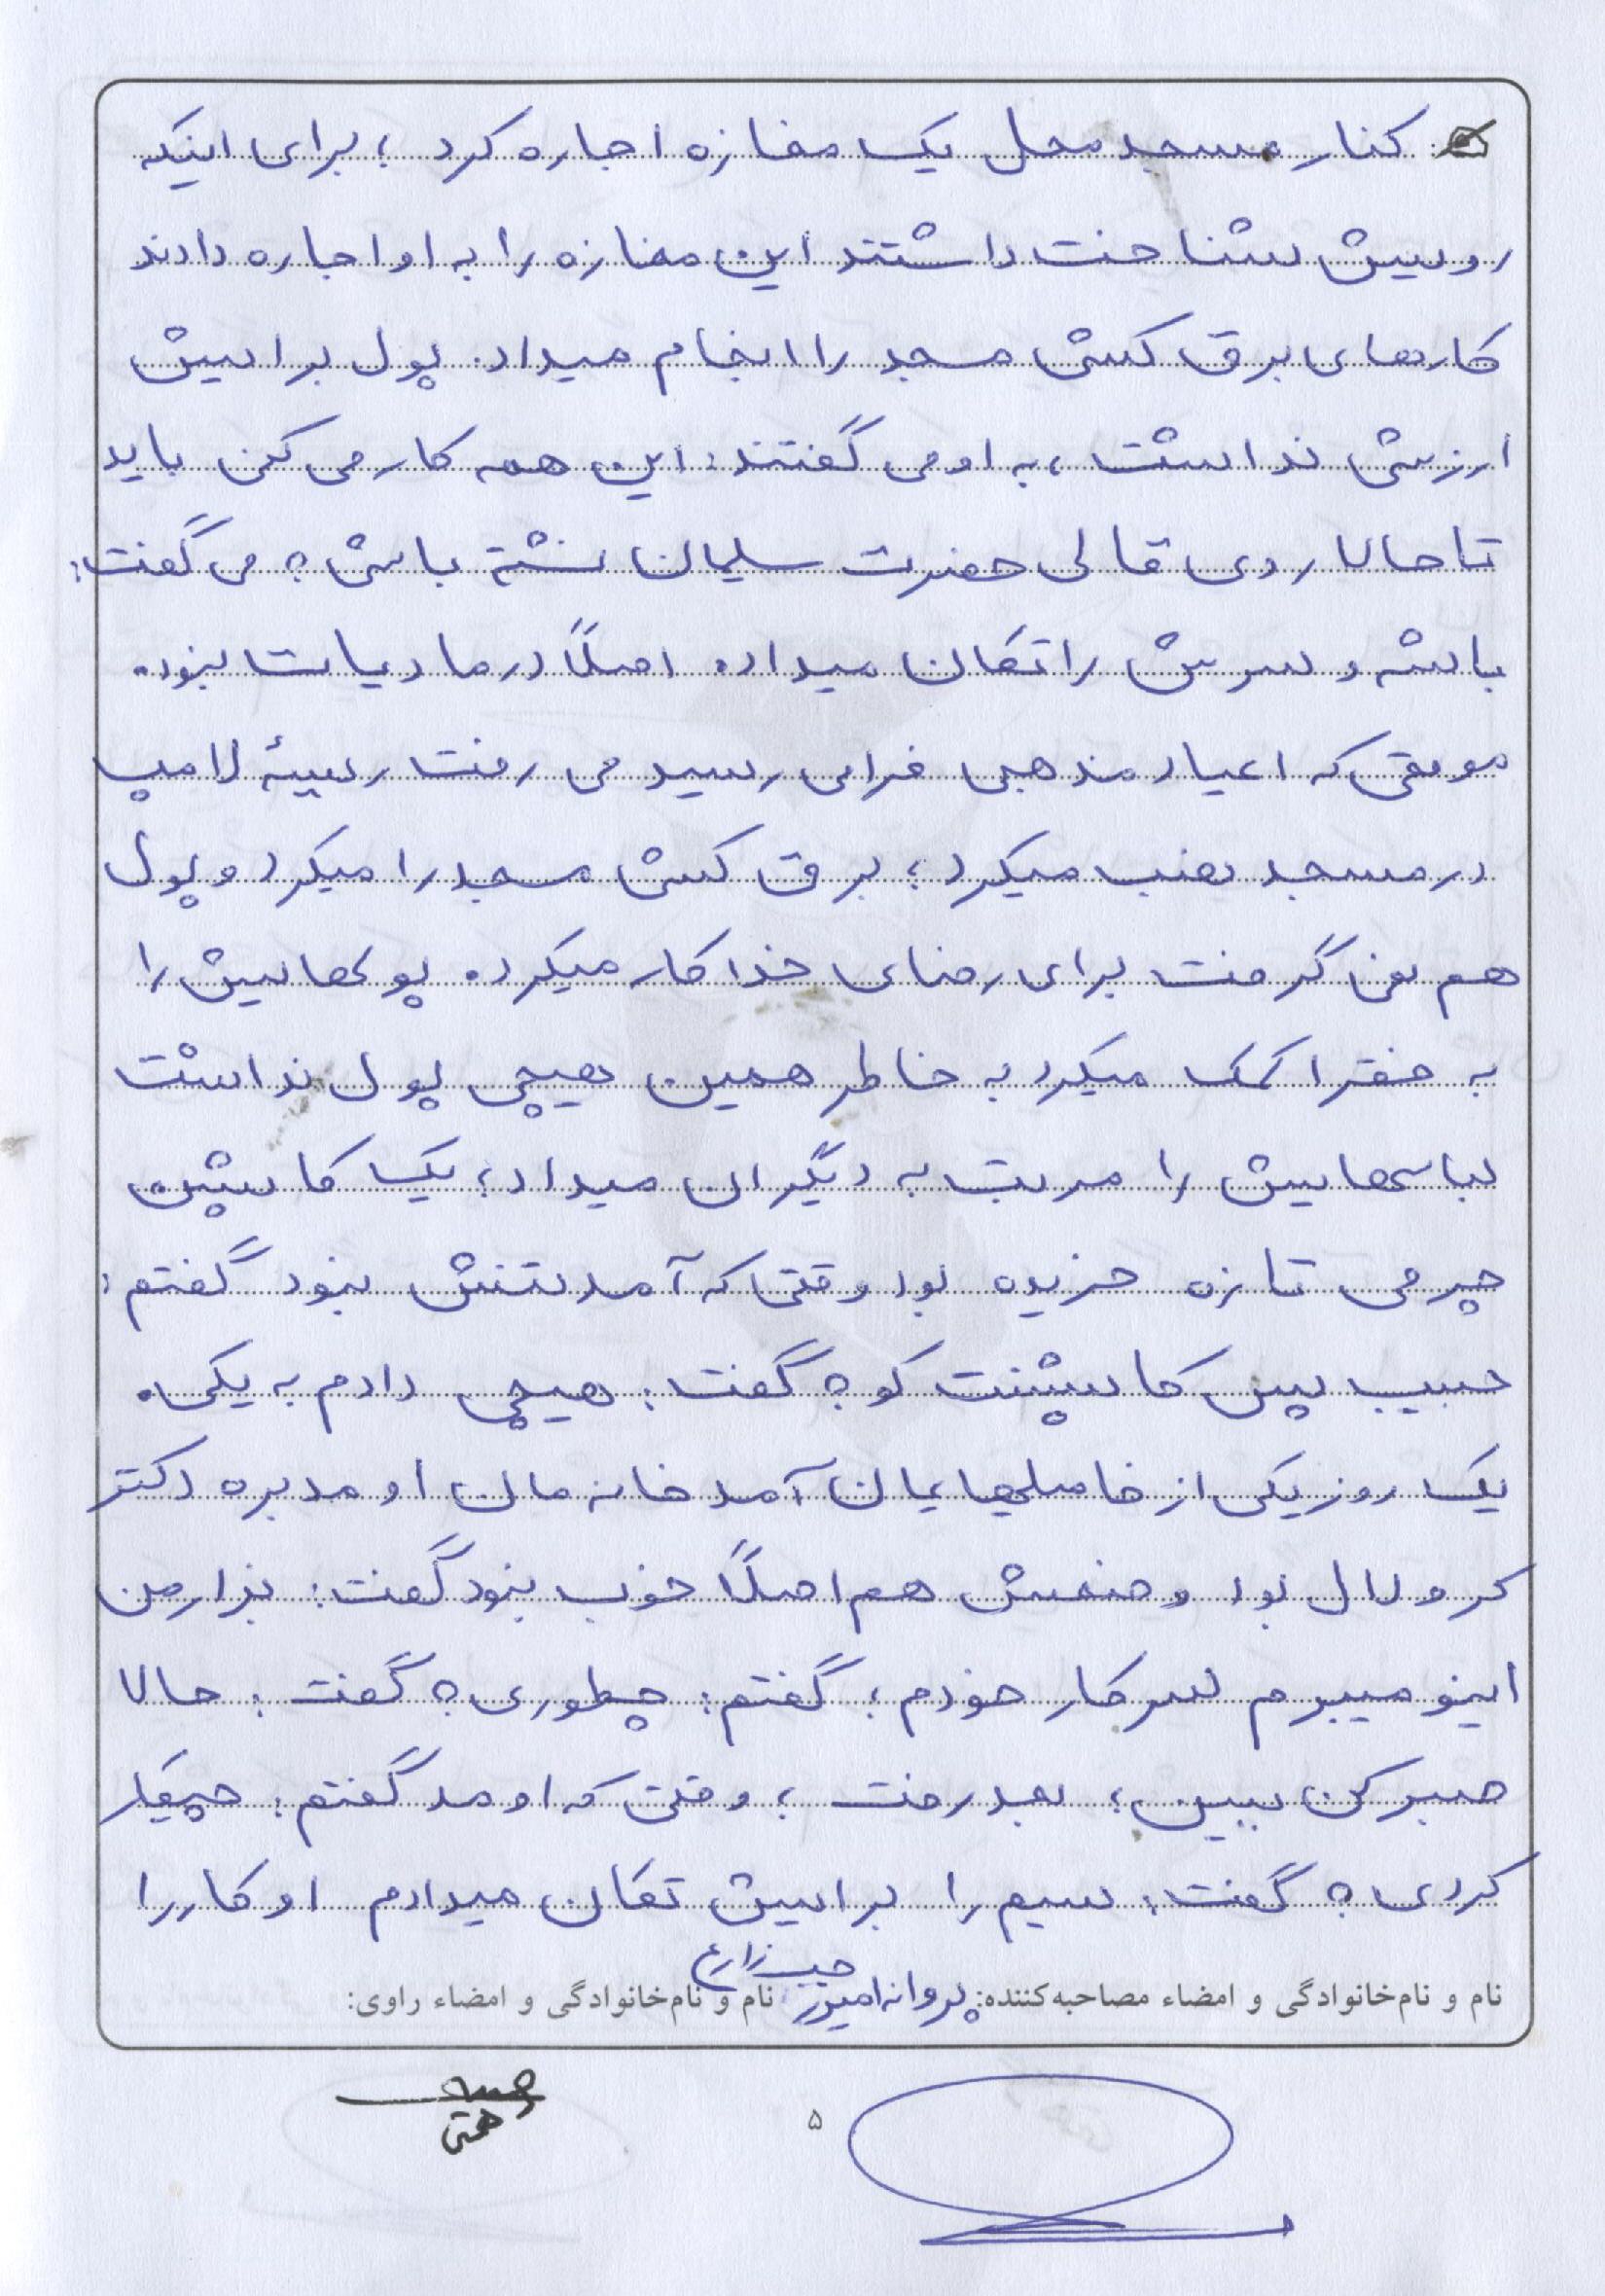 کنار مسجد محل یک مغازه اجاره کرد ؛ برای اینکه
رویش شناخت داشتند این مغازه را به او اجاره دادند
کارهای برق کشی مسجد را انجام میداد. پول برایش
ارزشی نداشت ، به او می گفتند : این همه کار می کنی باید
تا حالا روی قالی حضرت سلیمان نشسته باشی ؟ می گفت :
باشه و سرش را تکان میداد. اصلاً در مادیات نبود.
موقعی که اعیاد مذهبی فرامی رسید می رفت ریسهٔ لامپ
در مسجد نصب میکرد ؛ برق کشی مسجد را میکرد و پول
هم نمی گرفت برای رضای خدا کار میکرد. پولهایش را
به فقرا کمک میکرد به خاطر همین هیچی پول نداشت
لباسهایش را مرتب به دیگران میداد ؛ یک کاپشن
چرمی تازه خریده بود وقتی که آمد تنش نبود گفتم :
حبیب پس کاپشنت کو ؟ گفت : هیچی دادم به یکی.
یک روز یکی از فامیلهایمان آمد خانه مان اومد بره دکتر
کر و لال بود وضعش هم اصلاً خوب نبود گفت : بذار من
اینو میبرم سر کار خودم ؛ گفتم : چطوری ؟ گفت : حالا
صبر کن ببین ؛ بعد رفت ؛ وقتی که اومد گفتم : چیکار
کردی ؟ گفت : سیم را برایش تکان میدادم او کار را
نام و نام‌خانوادگی و امضاء مصاحبه‌کننده: پروانه نام و نام‌خانوادگی و امضاء راوی:
۵